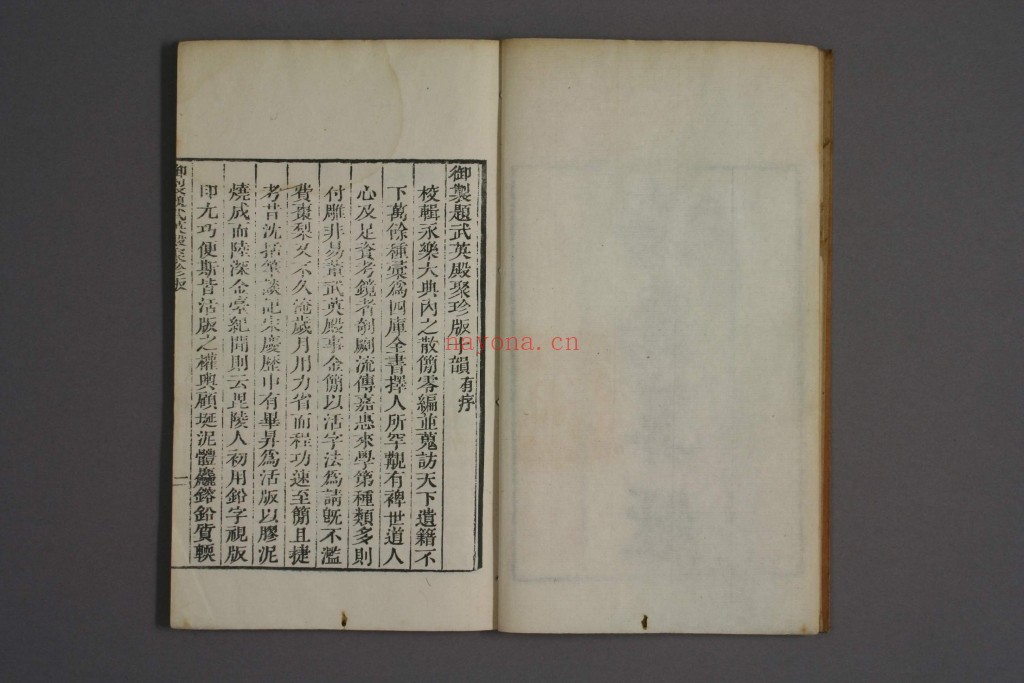 御製題武英殿聚珍版十韻有序
校輯永樂大典內之散簡零編並蒐訪天下遺籍不
下萬餘種彚爲四庫全書擇人所罕覯有裨世道人
心及足資考鏡者剞劂流傳嘉惠來學第種類多則
付雕非易董武英殿事金簡以活字法爲請旣不濫
費棗梨又不久淹歲月用力省而程功速至簡且捷
考昔沈括筆談記宋慶歷中有畢昇爲活版以膠泥
燒成而陸深金臺紀聞則云毘陵人初用鉛字視版
印尤巧便斯皆活版之權輿顧埏泥體麤鎔鉛質輭
御製題武英殿聚珍版
一
nayona.cn